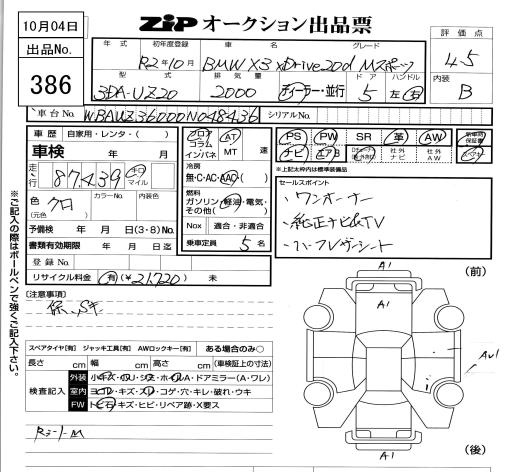 10月04日
ZiP オークション出品票
出品No.
386
年式 初年度登録 車名 グレード
R2年10月 BMW X3 xDrive20d Mスポーツ
評価点
4-5
型式 排気量 ドア ハンドル
3DA-UZ20 2000 ディーラー・並行 5 左・右
内装
B
車台No. WBAUZ36000N048436 シリアルNo.
車歴 自家用・レンタ・( )
車検 年 月 日
走行 87,439 キロ マイル
色 (元色) クロ カラーNo. 内装色
予備検 年 月 日(3・8)No.
書類有効期限 年 月 日迄
登録No.
リサイクル料金 有(¥21,720) 未
フロア コラム インパネ AT MT 速
冷房
無・C・AC・AAC
燃料
ガソリン・軽油・電気・その他( )
Nox 適合・非適合
乗車定員 5 名
PS PW SR 革 AW 新車時保証書
ナビ エアB 社外ナビ 社外AW スペアキー
※上記太枠内は標準装備品
セールスポイント
・ワンオーナー
・純正ナビ&TV
・ハーフレザーシート
[注意事項]
保、Sキー
スペアタイヤ[有] ジャッキ工具[有] AWロックキー[有] ある場合のみ○
長さ cm 幅 cm 高さ cm (車検証上の寸法)
検査記入
外装 小キズ・ハリ・シミ・ホイルA・ドアミラー(A・ワレ)
室内 ヨゴレ・キズ・スレ・コゲ・穴・キレ・破れ・ウキ
FW トビ石・キズ・ヒビ・リペア跡・X要ス
※ご記入の際はボールペンで強くご記入下さい。
(前)
A1
A1
A1
(後)